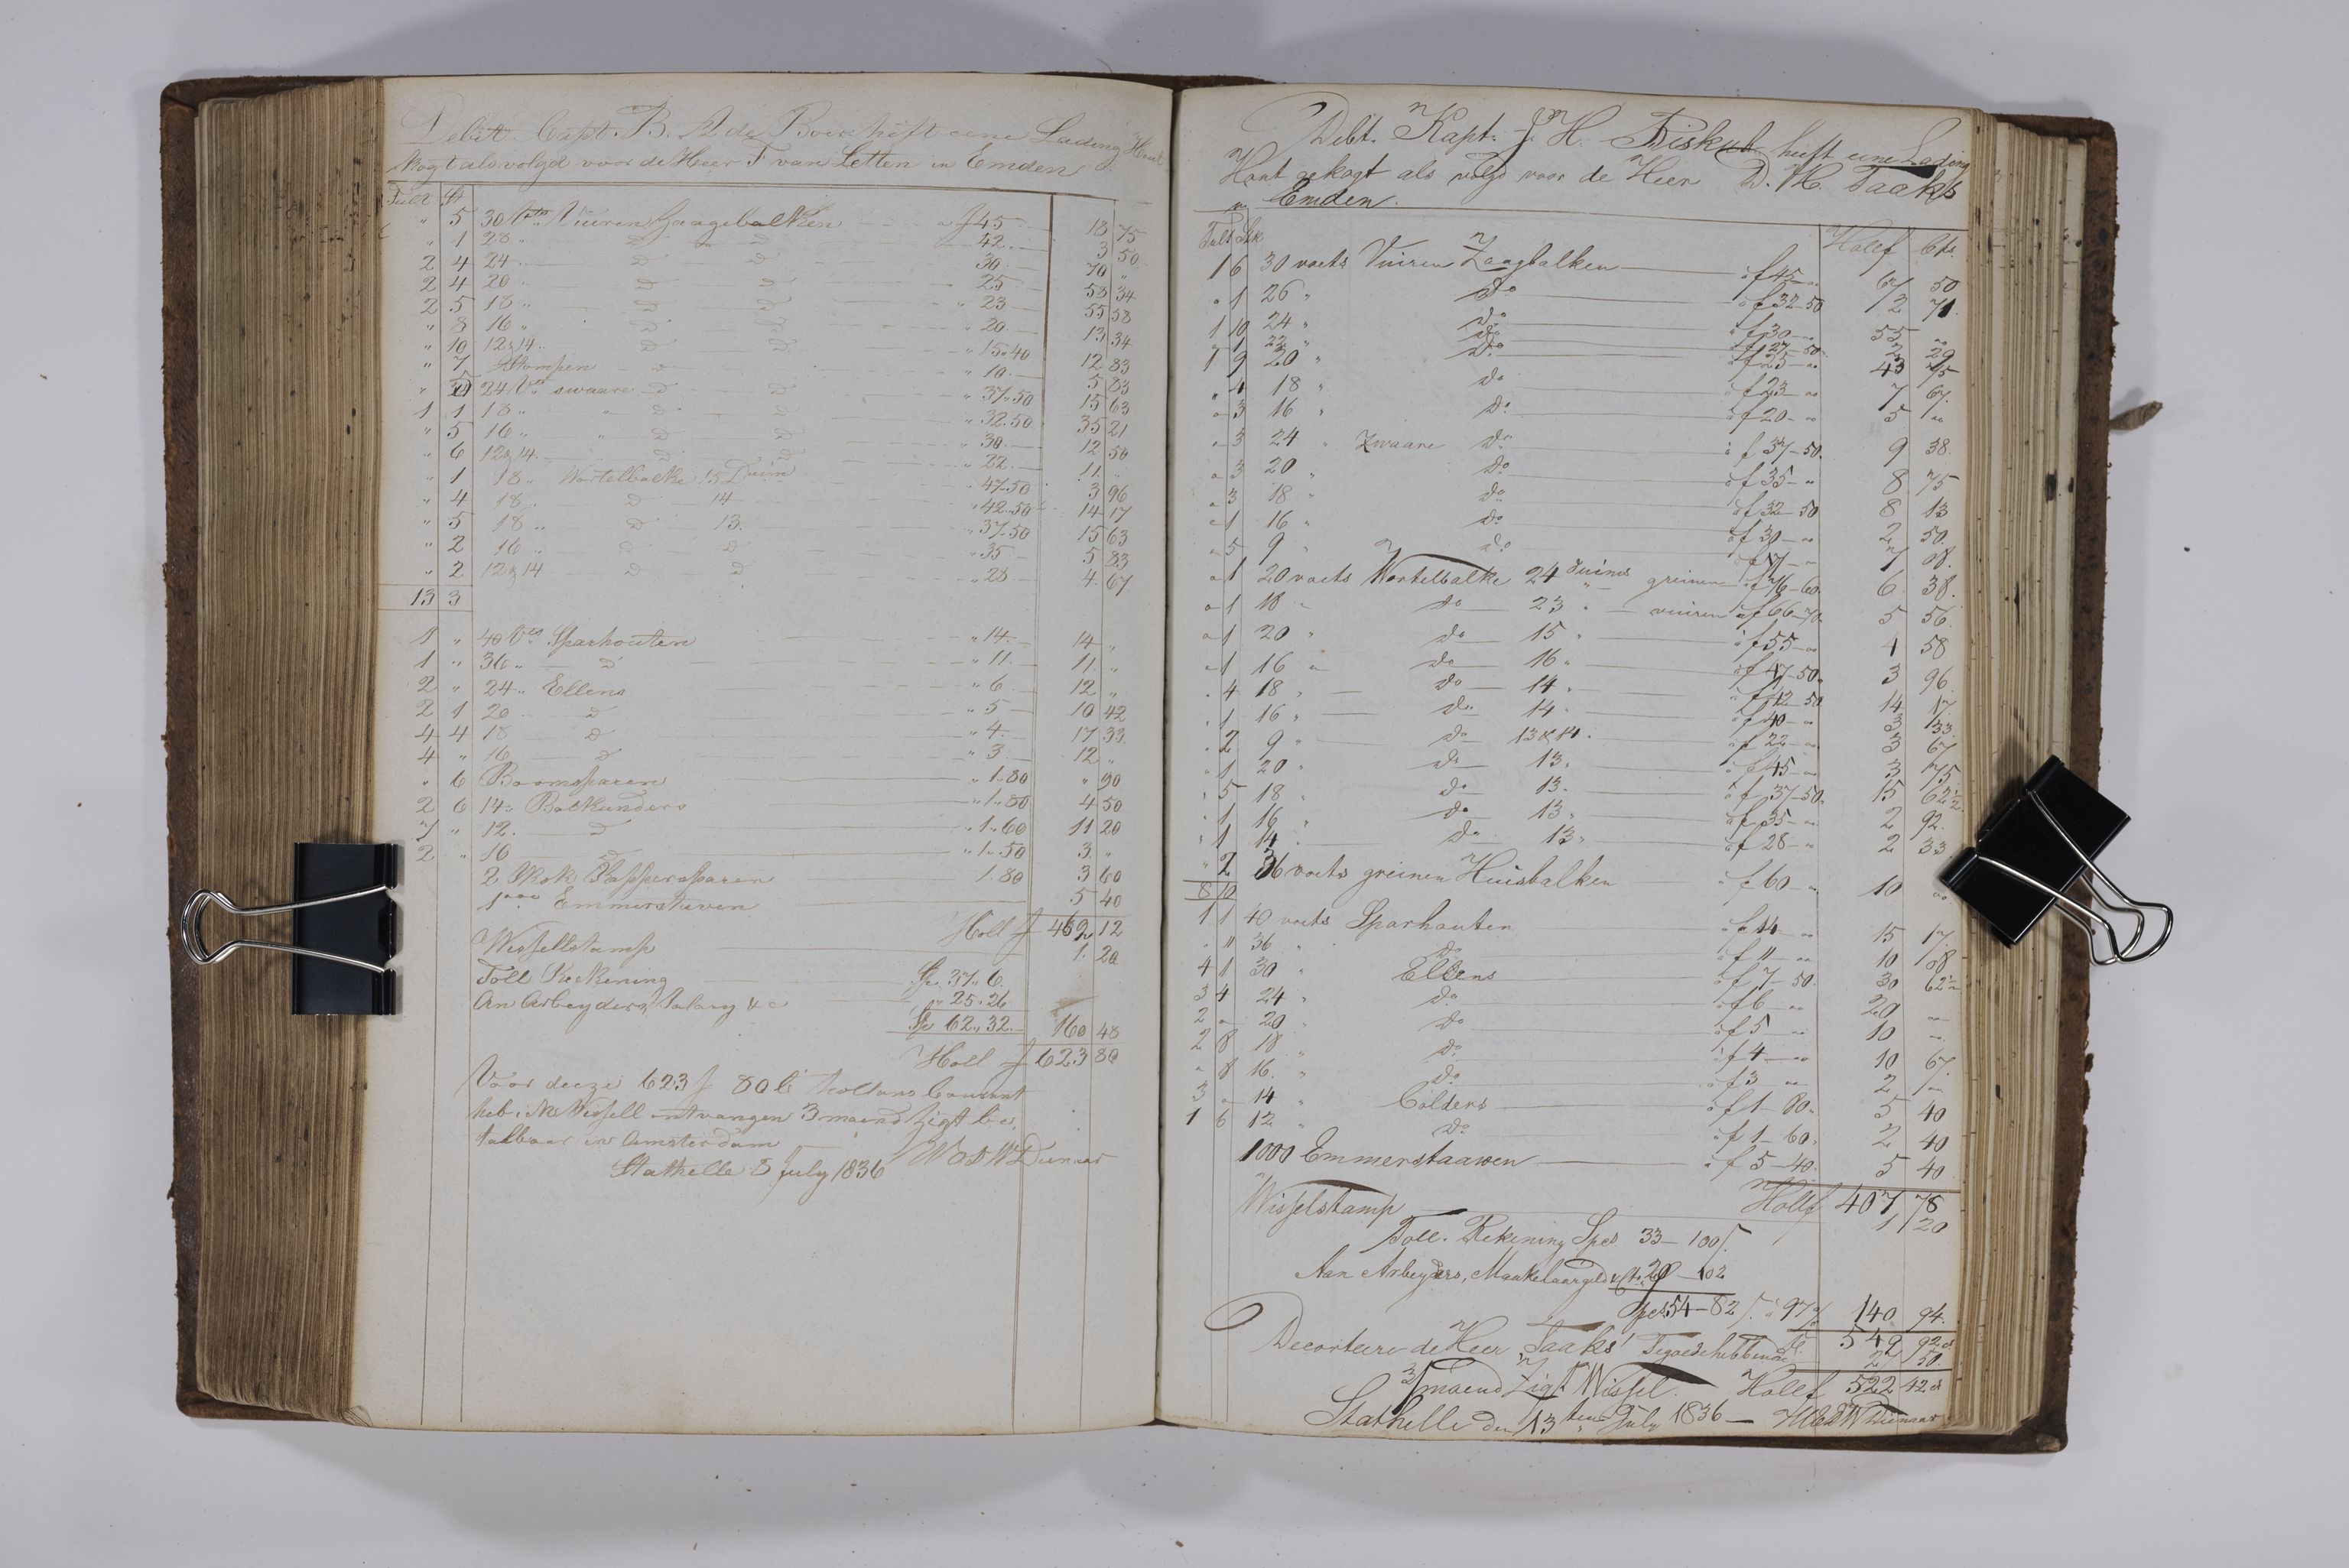 Debit. Capt. B. A de Boer hift eene Lading Hout
kogt als volgd voor de Heer F van Letten in Emden
Tult St
" 5 30 Vts Vuiren Zaagebalken f 45 18 75
" 1 28 " D D 42 3 50
2 4 24 " D D 30 70 "
2 4 20 " D D 25 58 34
2 5 18 " D D " 23 55 58
" 8 16 " D D " 20 13 34
" 10 12 & 14 " D D " 15.40 12 83
" 7 Stompen D " 10 5 83
" 5 24 Vts swaare D D " 37.50 15 63
1 1 18 " " D D " 32.50 35 21
" 5 16 " " D D " 30 12 50
" 6 12 & 14 " D D " 22 11 "
" 1 18 " Wortelbalke 15 Duim " 47.50 3 96
" 4 18 " D 14 " 42.50 14 17
" 5 18 " D 13 " 37.50 15 63
" 2 16 " D D " 35 5 83
" 2 12 & 14 D D " 28 4 67
13 3
1 " 40 Vts Sparhouten " 14 14 "
1 " 36 " D " 11 11 "
2 " 24 " Ellens " 6 12 "
2 1 20 " D " 5 10 42
4 4 18 D " 4 17 33
4 " 16 D " 3 12 "
" 6 Boomsparen " 1.80 " 90
2 6 14 " Bolkunders " 1.80 4 50
7 " 12 " D " 1.60 11 20
2 " 10 D " 1.50 3 "
2 Skok Klappersparen 1.80 3 60
1000 Emmersteven 5 40
Holl f 462 12
Wissellstamp 1 20
Toll Reckening Sp. 37 " 6
An Arbeyders Salary & c " 25 " 26
Sp 62 " 32 160 48
Holl f 623 80
Voor deeze 623 f 80 C hollans Courant
heb ik Wissell ontvangen 3 maend zigt be,
talbaar in Amsterdam
Stathelle 5 July 1836 WEdW Dienaar
Debt. Kapt. J. H. Biskub heeft eene Lading
Hout gekogt als volgd voor de Heer D. H. Taaks
in Emden.
Tult Stk Holl f Cts.
1 6 30 voets Vuiren Zaagbalken á f 45 67 50
" 1 26 " do á f 32-50 2 71
1 10 24 " do á f 30 55 "
" 1 22 " do á f 27-50 2 29
1 9 20 " do á f 25 43 75
" 4 18 " do á f 23 7 67
" 3 16 " do á f 20 5 "
" 3 24 " Zwaare do á f 37-50 9 38
" 3 20 " do á f 35 8 75
" 3 18 " do á f 32-50 8 13
" 1 16 " do á f 30 2 50
" 5 9 " do á f 17 7 08
" 1 20 voets Wortelbalke 24 duims greinen á f 76-60 6 38
" 1 18 " do 23 " vuiren á f 66-70 5 56
" 1 20 " do 15 " á f 55 4 58
" 1 16 " do 16 " á f 47-50 3 96
" 4 18 " do 14 " á f 42-50 14 17
" 1 16 " do 14 " á f 40 3 33
" 2 9 " do 13 & 14 " á f 22 3 67
" 1 20 " do 13 " á f 45 3 75
" 5 18 " do 13 " á f 37-50 15 62½
" 1 16 " do 13 " á f 35 2 92
" 1 14 " do 13 " á f 28 2 33
" 2 36 voets greinen Huisbalken á f 60 10 "
8 10
1 1 40 voets Sparhouten á f 14 15 17
" 11 36 " do á f 11 10 08
4 1 30 " Ellens á f 7-50 30 62½
3 4 24 " do á f 6 20 "
2 " 20 " do á f 5 10 "
2 8 18 " do á f 4 10 67
" 8 16 " do á f 3 2 "
3 " 14 " Colders á f 1-80 5 40
1 6 12 " do á f 1-60 2 40
1000 Emmerstaawen á f 5-40 5 40
Holl f 407 78
Wisselstamp 1 20
Toll. Rekening Spes 33-100
Aan Arbeyders, Maakelaargeld & Ct. 20-102
Spes 54-82 á 97 140 94
549 92
Decorteere de Heer Taaks' Tegoedehebbende 27 50
3/maend Zigt Wissel. Holl f 522 42
Stathelle den 13ten July 1836 - WEdW Dienaar